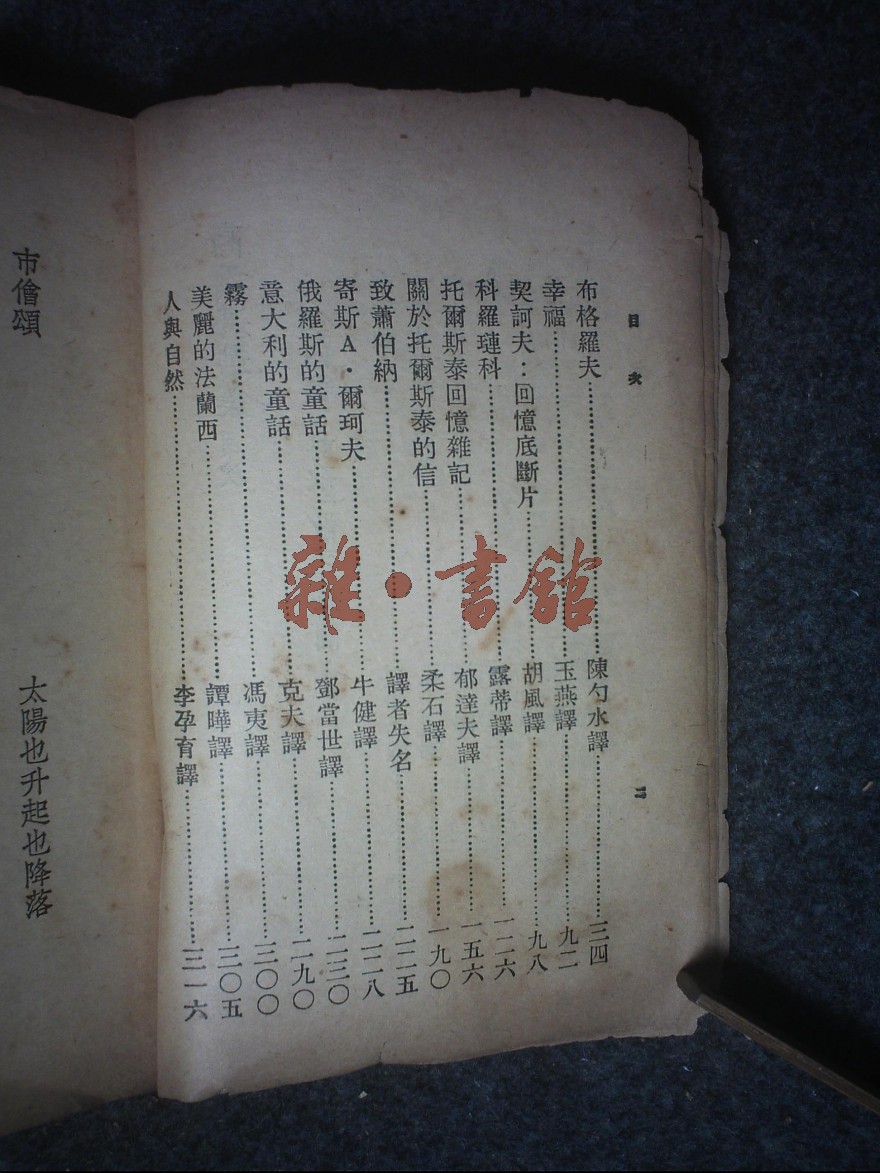 目次
二
布格羅夫……陳勺水譯……三四
幸福……玉燕譯……九二
契訶夫：回憶底斷片……胡風譯……九八
科羅璉科……露蒂譯……一二六
托爾斯泰回憶雜記……郁達夫譯……一五六
關於托爾斯泰的信……柔石譯……一九〇
致蕭伯納……譯者失名……二二五
寄斯A·爾珂夫……牛健譯……二二八
俄羅斯的童話……鄧當世譯……二三〇
意大利的童話……克夫譯……二九〇
霧……馮夷譯……三〇〇
美麗的法蘭西……譚曄譯……三〇五
人與自然……李孕育譯……三一六
市儈頌
太陽也升起也降落
雜·書館